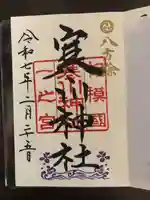 八方除
寒川神社
相模國
一之宮
寒川神社
令和七年二月二十五日